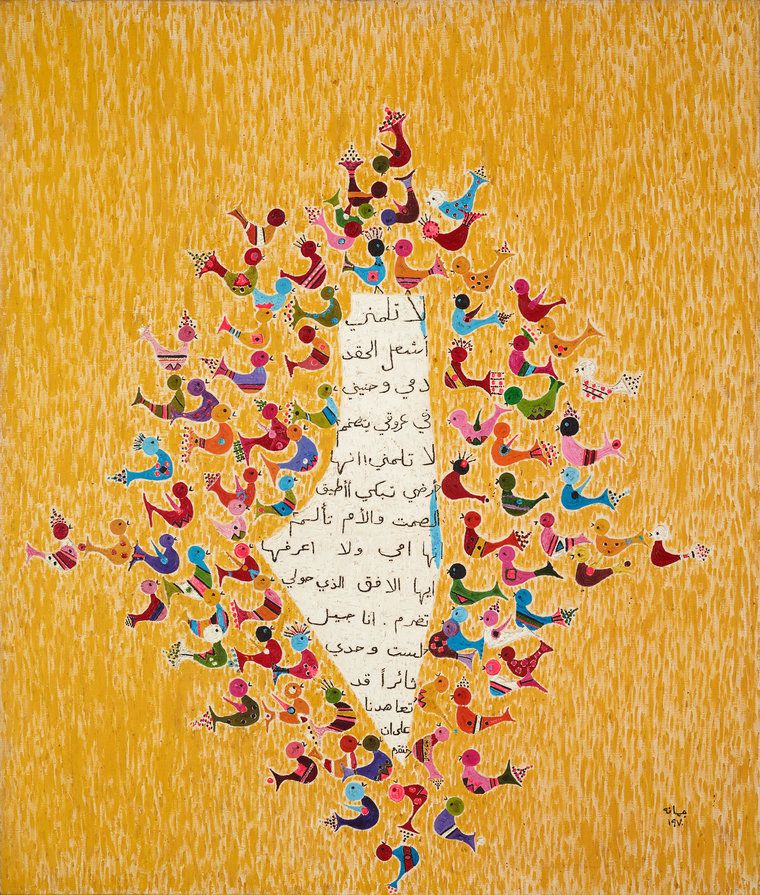 لا تلمني
أشعل الحقد
دمي وحنيني
في عروقي يتضخم
لا تلمني! إنها
أرضي تبكي أأطيق
الصمت والأم تألم
إنها امي ولا اعرفها
ايها الافق الذي حولي
تضرم . انا جيل
لست وحدي
ثائراً قد
تعاهدنا
على ان
جمانه
١٩٧٠